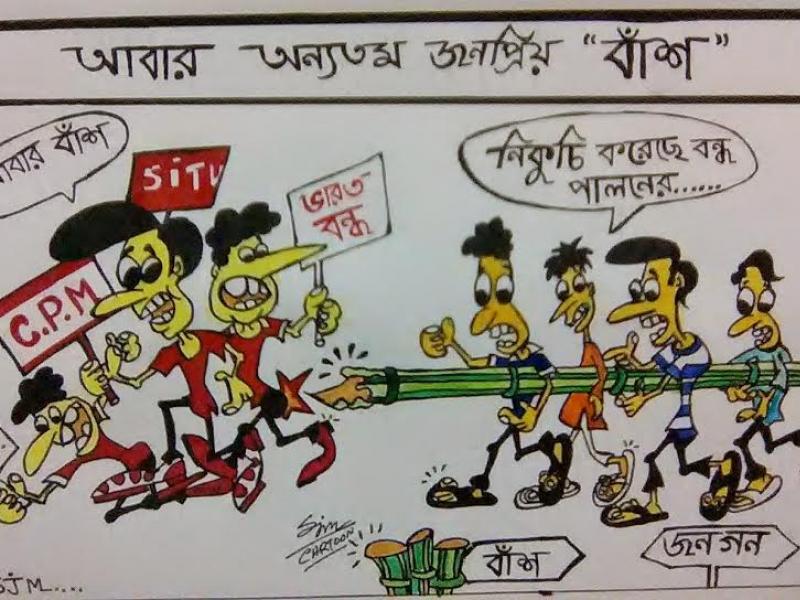 আবার অন্যতম জনপ্রিয় "বাঁশ"
আবার বাঁশ
SiTU
ভারত
বন্ধ
C.P.M
নিকুচি করেছে বন্ধ
পালনের......
Sjm
CARTOON
বাঁশ
জন গন
SJM....